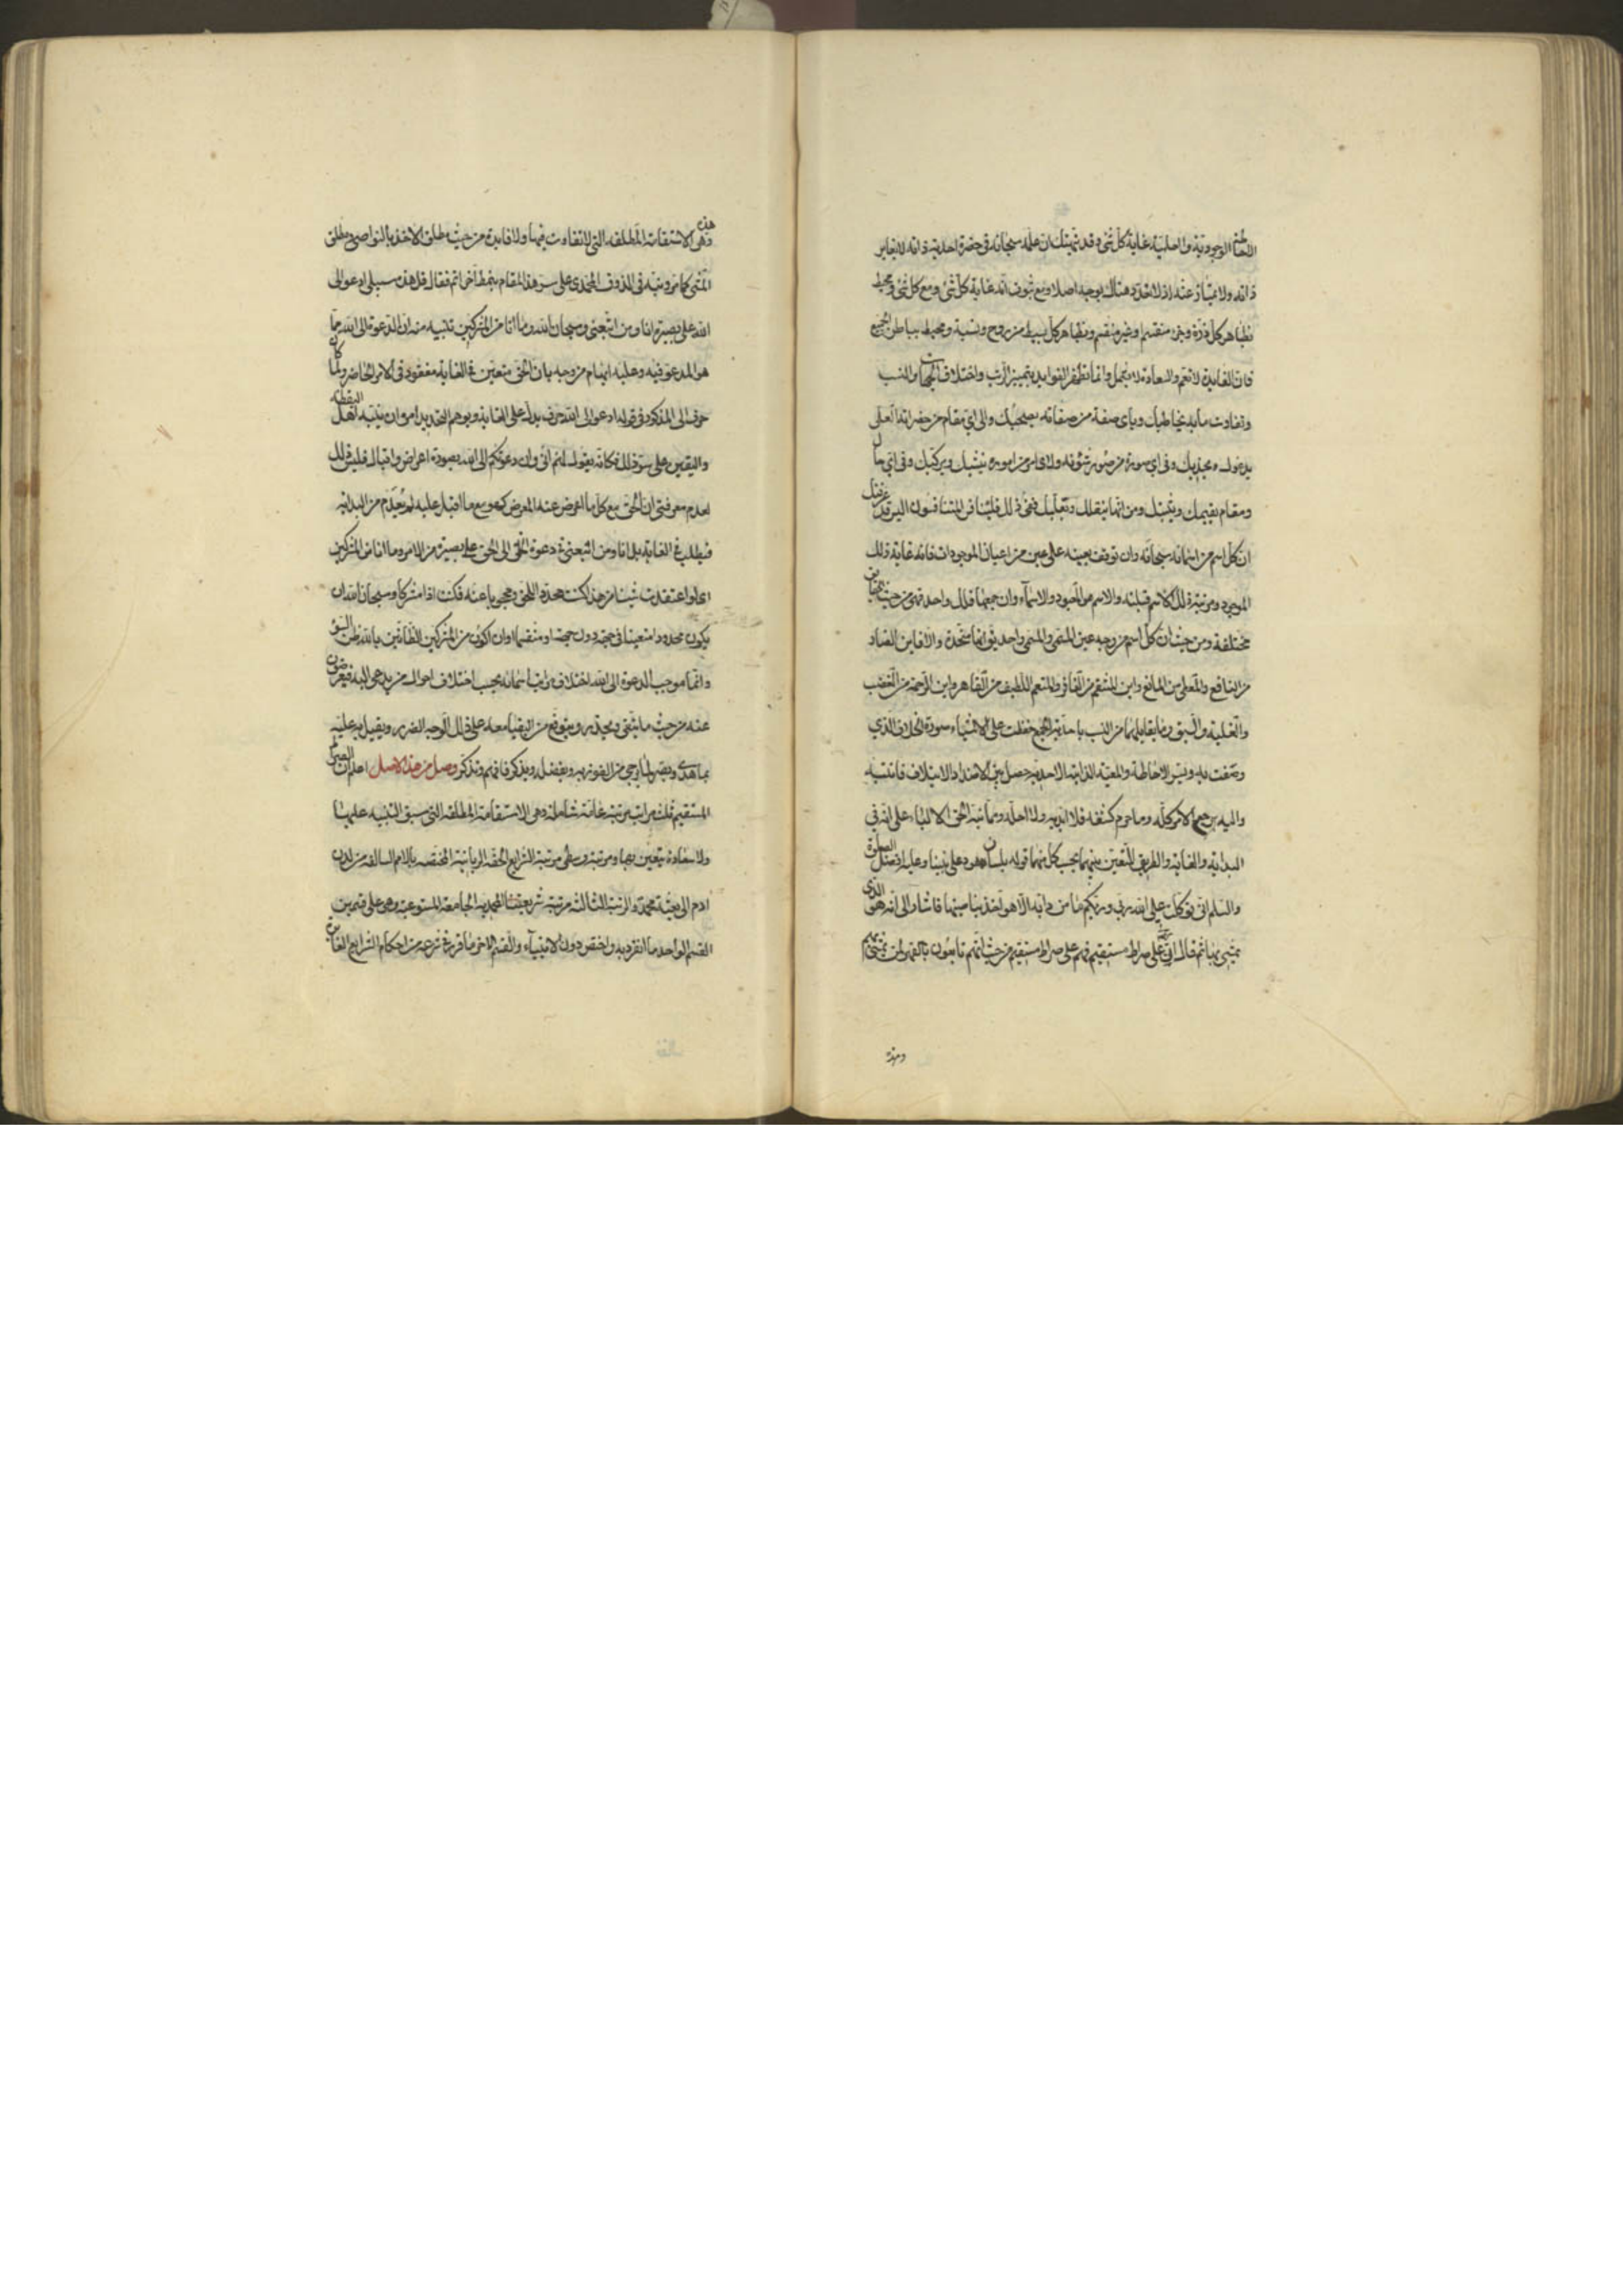 الوجودية والعلمية غاية كل شئ وقد نبهتك ان علمه سبحانه في حضرة احدية ذاته لا يغاير
ذاته ولا يمتاز عنه اذ لا تعدد هناك بوجه اصلا ومع ثبوت انه غاية كل شئ ومع كل شئ ومحيط
بظاهر كل ذرة وجزء منقسم او غير منقسم وبظاهر كل بسيط من روح ونسبة ومحيط بباطن الجميع
فان الفايدة لا تعم والسعادة لا تشمل وانما تظهر الفوايد بتميز الرتب واختلاف الجهات والنسب
وتفاوت ما به يخاطبك وباى صفة من صفاته يصحبك والى اي مقام من حضراته العلى
يدعوك ويجذبك وفي اي صورة من صور شؤنه ولاي امر من اموره ينشيك ويركبك وفي اي حال
ومقام يقيمك ويثبتك ومن ايها ينقلك ويقلبك ففي ذلك فليتنافس المتنافسون
ان كل اسم من اسمائه سبحانه وان توقف تعينه على عين من اعيان الموجودات فانه غاية ذلك
الموجود ومرتبة ذلك الاسم قبلته والاسم هو المعبود والاسماء وان جمعها فلك واحد فهي من حيث
مختلفة ومن حيث ان كل اسم من وجه عين المسمى والمسمى واحد توافقا متحدة والا فاين الضار
من النافع والمعطي من المانع واين المنتقم من الغافر والمنعم اللطيف من القاهر واين الرحمة من الغضب
والغلبة والسبق وما يقابلهما من النسب باحدية الجمع حفظت على الاشياء صورة الخلاف الذي
وصفت به وبسر الاحاطة والمعية الذاتية الاحدية حصل بين الاضداد الايتلاف فانتسبه
واليه يرجع الامر كله وما حرم كشفه فلا ابديه ولا احله ومما نبه الحق الالباء على انه في
البداية والغاية والطريق المتعين بينهما بحسب كل منهما قوله بلسان هود على نبينا وعليه افضل الصلوة
والسلم اني توكلت على الله ربي وربكم ما من دابة الا هو آخذ بناصيتها فاشار الى انه هو الذي
يمشي بها ثم قال ان ربي على صراط مستقيم فهم على صراط مستقيم من حيث انهم تابعون بالقهر لمن يمشي بهم
وهذه
وهذه هي الاستقامة المطلقة التي لا تفاوت فيها ولا فايدة من حيث مطلق الاخذ بالنواصي ومطلق
المشي كما مر ونبه في الذوق المحمدي على سر هذا المقام بنمط آخر اتم فقال قل هذه سبيلي ادعو الى
الله على بصيرة انا ومن اتبعني وسبحان الله وما انا من المشركين تنبيه منه ان الدعوة الى الله مما
هو المدعو فيه وعليه ايهام من وجه بان الحق متعين في الغاية مفقود في الامر الحاضر ولما كان
حرف الى المذكور في قوله ادعو الى الله حرف يدل على الغاية ويوهم التحديد امر ان ينبه اهل اليقظة
واليقين على سر ذلك فكانه يقول لهم اني وان دعوتكم الى الله بصورة اعراض واقبال فليس ذلك
لعدم معرفتي ان الحق مع كل ما اعرض عنه المعرض كهو مع ما اقبل عليه لم يعدم من البداية
فيطلب في الغاية بل انا ومن اتبعني في دعوة الخلق الى الحق على بصيرة من الامر وما انا من المشركين
اي لو اعتقدت شيئا من هذا كنت محددا للحق ومحجوبا عنه فكنت اذا مشركا وسبحان الله ان
يكون محدودا متعينا في جهة دون جهة او منقسما او ان اكون من المشركين الظانين بالله ظن السوء
وانما موجب الدعوة الى الله اختلاف مراتب اسمائه بحسب اختلاف احوال من يدعى اليه فيعرضون
عنه من حيث ما يتقى ويحذر ويتوقع من البقاء معه على ذلك الوجه الضرر ويقبل به عليه
بما هدى وبصر لما يرجى من الفوز به وبفضله ويذكر فافهم وتذكر وصل من هذا الاصل اعلم ان الصراط
المستقيم ثلث مراتب مرتبة عامة شاملة وهي الاستقامة المطلقة التي سبق التنبيه عليها
ولا سعادة تتعين بها ومرتبة وسطى مرتبة الشرايع الحقة الربانية المختصة بالامم السالفة من لدن
ادم الى بعثة محمد والرتبة الثالثة مرتبة شريعتنا المحمدية الجامعة المستوعبة وهي على قسمين
القسم الواحد ما انفرد به واختص دون الانبياء والقسم الاخر ما قرر في شرعه من احكام الشرايع